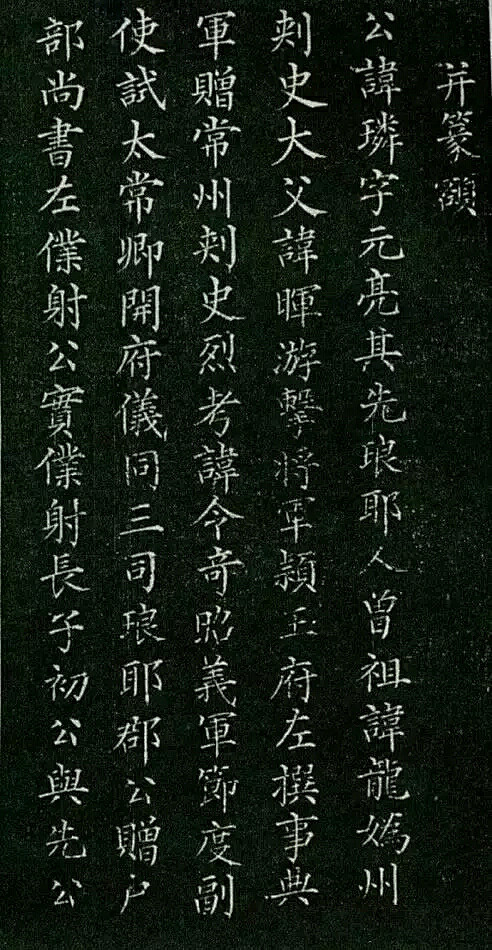 并篆額
公諱璘字元亮其先琅耶人曾祖諱龍嬀州
刾史大父諱暉游擊將軍潁王府左撰事典
軍贈常州刾史烈考諱令奇昭義軍節度副
使試太常卿開府儀同三司琅耶郡公贈户
部尚書左僕射公實僕射長子初公與先公